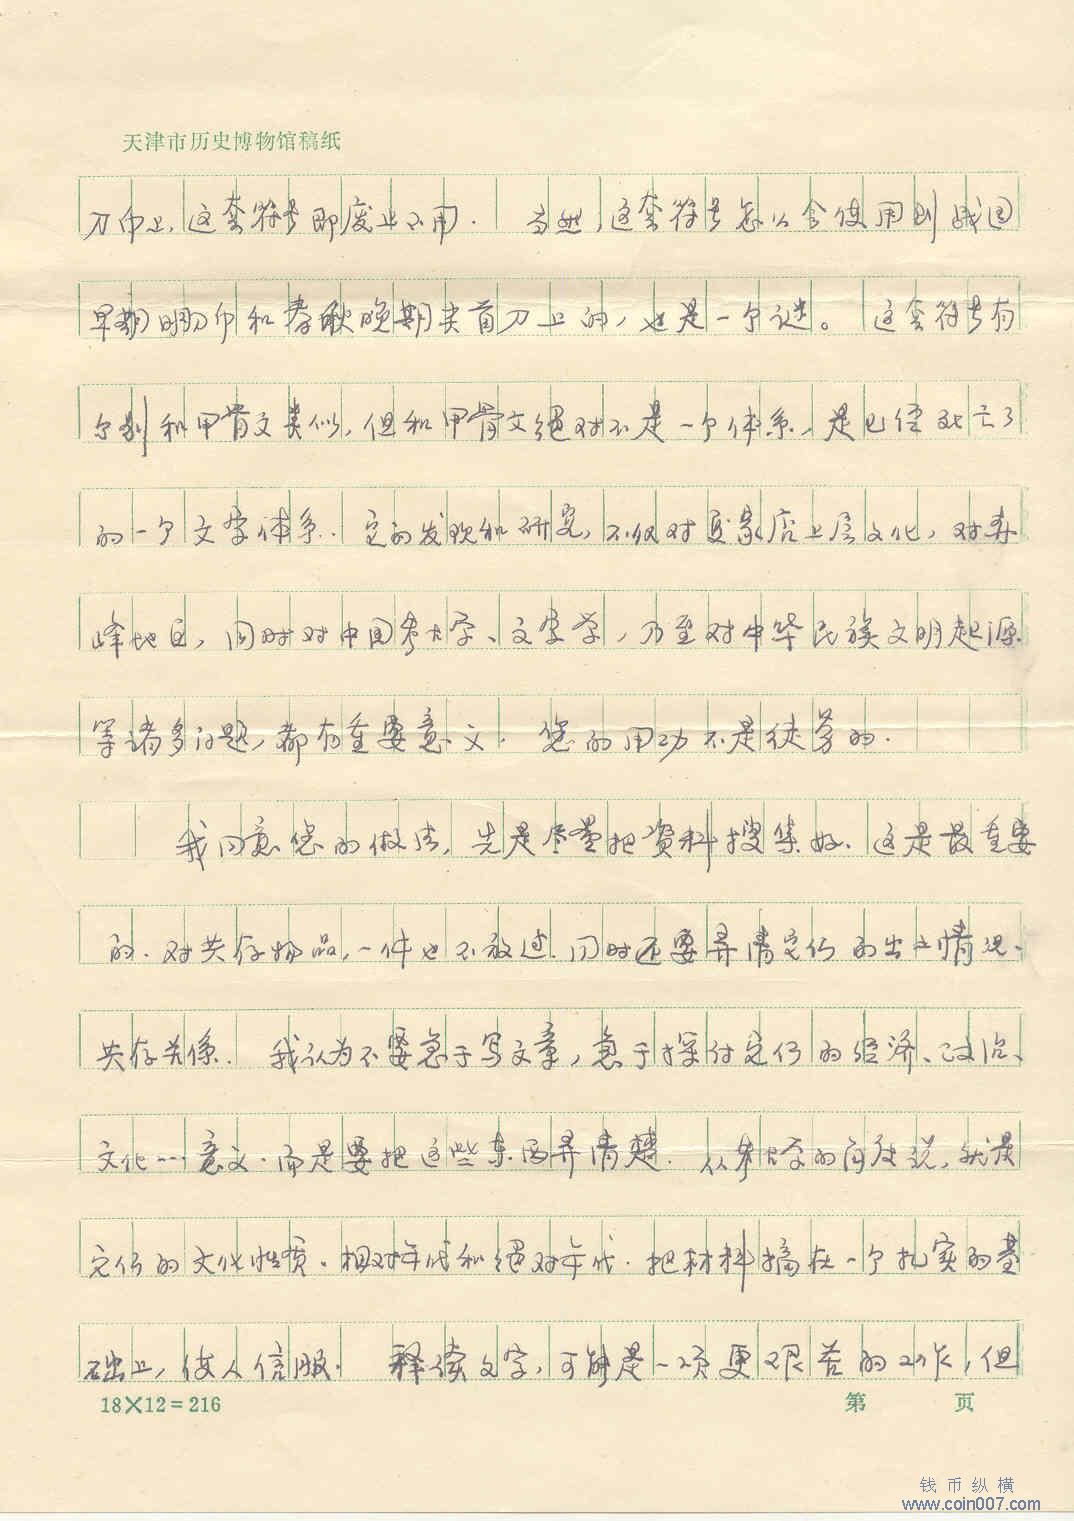 天津市历史博物馆稿纸
刀币上，这套符号即废止不用. 当然，这套符号怎么会使用到战国
早期明刀币和春秋晚期尖首刀上的，也是一个谜。 这套符号有
个别和甲骨文类似，但和甲骨文绝对不是一个体系，是已经死亡了
的一个文字体系. 它的发现和研究，不仅对夏家店上层文化，对赤
峰地区，同时对中国考古学、文字学，乃至对中华民族文明起源
等诸多问题，都有重要意义. 您的用功不是徒劳的.
我同意您的做法，先是尽量把资料搜集好. 这是最重要
的. 对共存物品，一件也不放过. 同时还要弄清它们的出土情况、
共存关系. 我认为不要急于写文章，急于探讨它们的经济、政治、
文化……意义. 而是要把这些东西弄清楚. 从考古学的角度说，就是
它们的文化性质. 相对年代和绝对年代. 把材料搞在一个扎实的基
础上，使人信服. 释读文字，可能是一项更艰苦的工作，但
18×12=216
第 页
钱币纵横
www.coin007.com